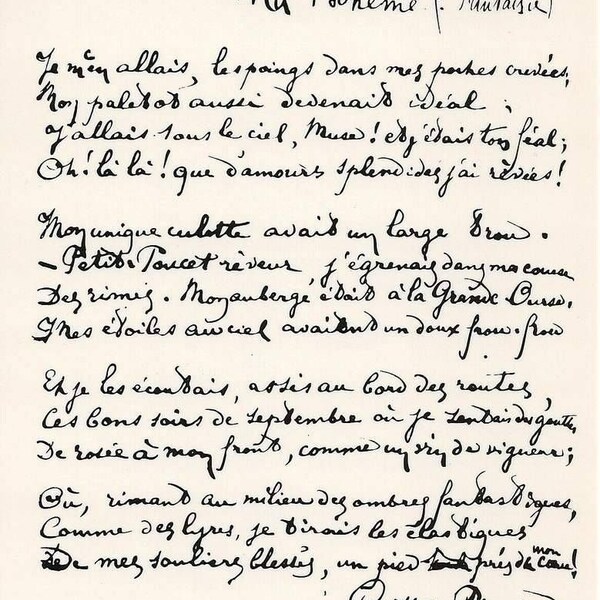 Ma Bohême (Fantaisie)
Je m'en allais, les poings dans mes poches crevées;
Mon paletot aussi devenait idéal;
J'allais sous le ciel, Muse! et j'étais ton féal;
Oh! là là! que d'amours splendides j'ai rêvées!
Mon unique culotte avait un large trou.
- Petit-Poucet rêveur j'égrenais dans ma course
Des rimes. Mon auberge était à la Grande-Ourse.
Mes étoiles au ciel avaient un doux frou-frou
Et je les écoutais, assis au bord des routes,
Ces bons soirs de septembre où je sentais des gouttes
De rosée à mon front, comme un vin de vigueur;
Où, rimant au milieu des ombres fantastiques,
Comme des lyres, je tirais les élastiques
De mes souliers blessés, un pied près de mon cœur!